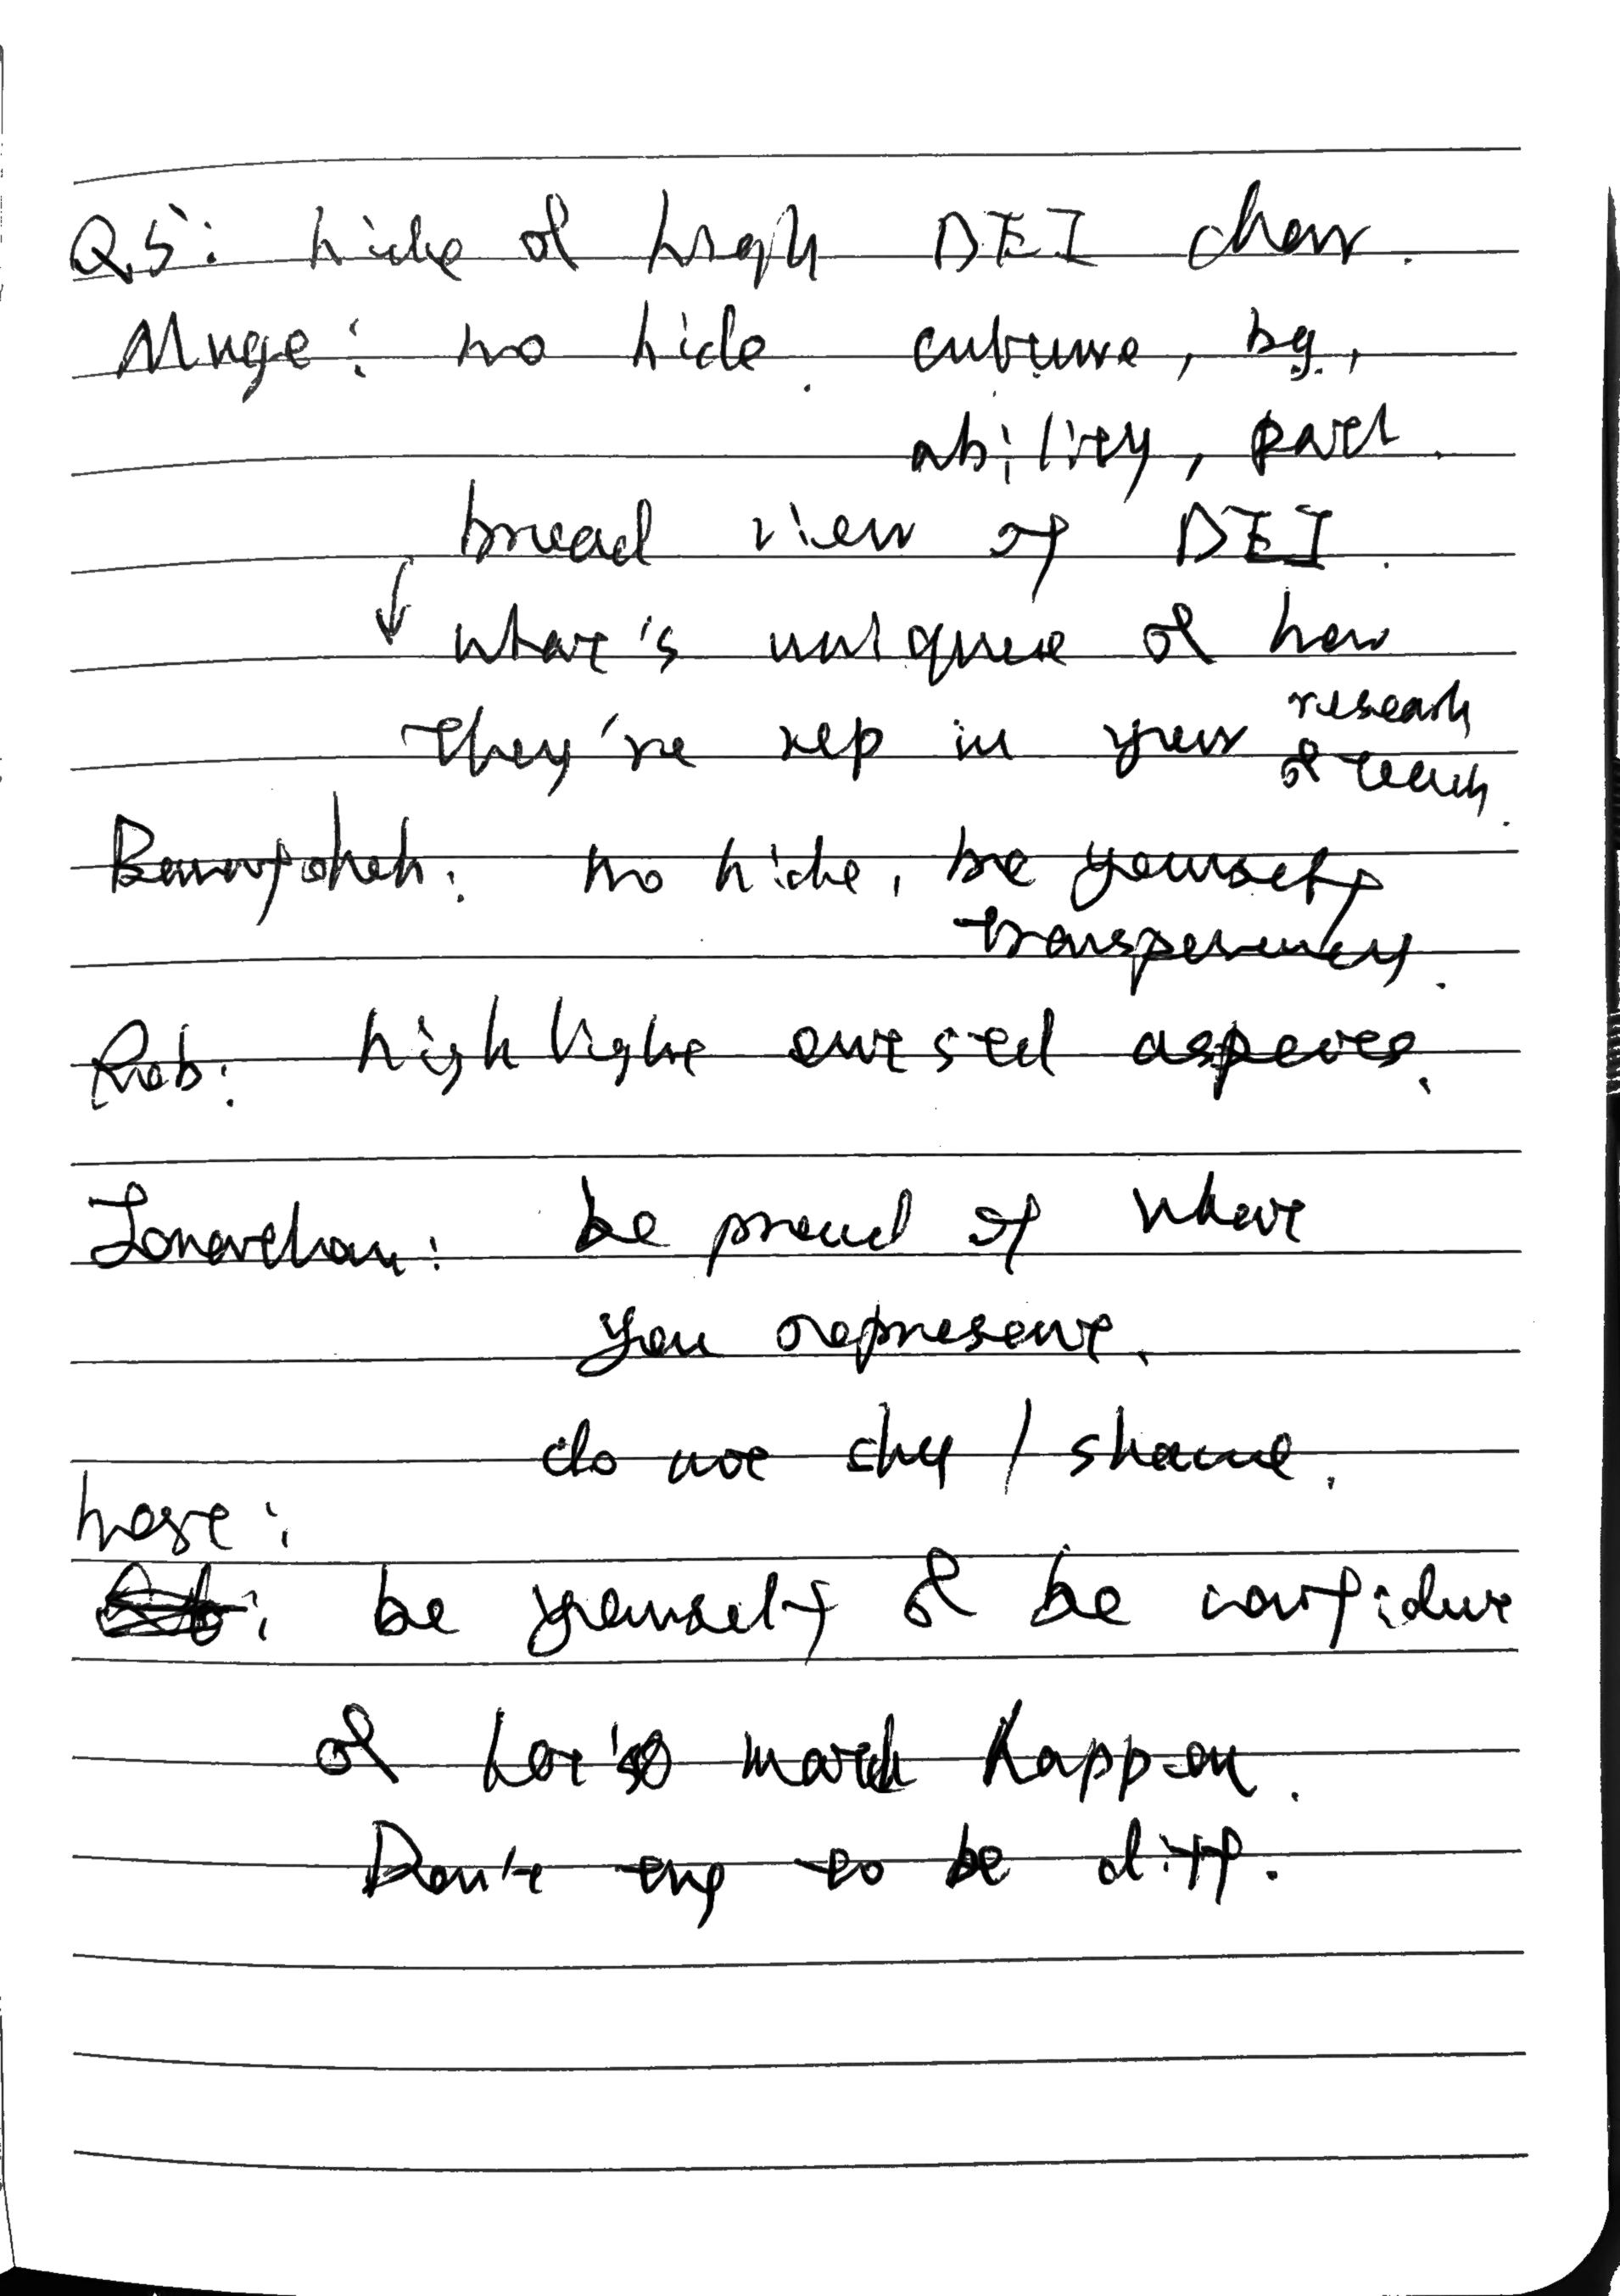 Q5: hide & high DEI char.
Muge: no hide. culture, bg.,
ability, part.
broad view of DEI.
↓ what's unique & how
they're rep in your research & teach.
no hide, be yourself,
transparency.
Rob: highlight aspects.
Jonathan: be proud of what
you represent.
do not shy / shame.
host:
be yourself & be confident
& let's match happen.
Don't try to be diff.